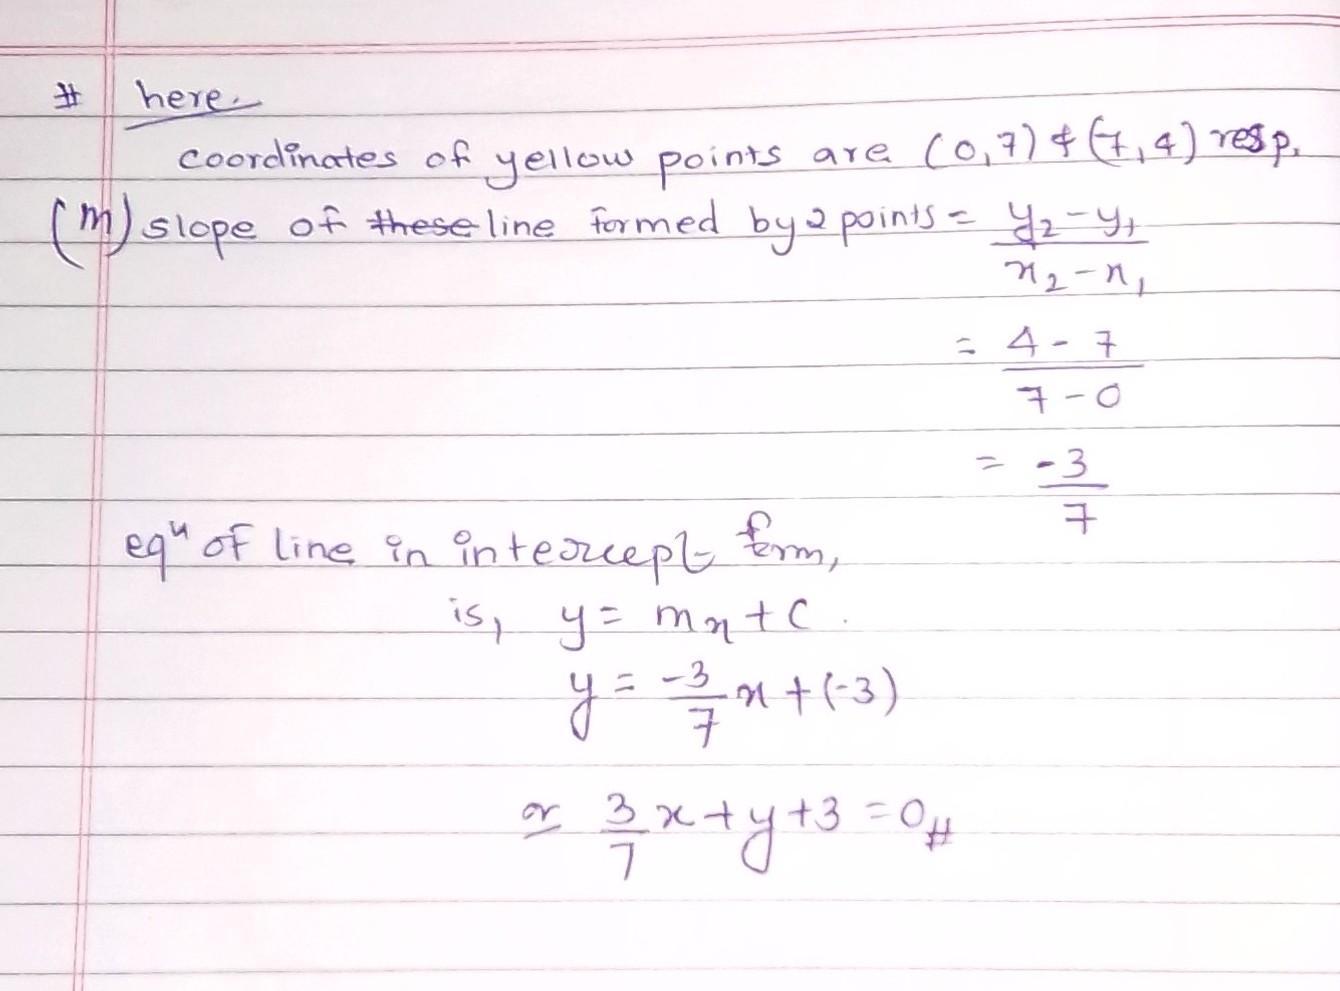 # here.
coordinates of yellow points are (0,7) & (7,4) resp.
(m) slope of these line formed by 2 points = y₂-y₁/x₂-x₁
= 4-7/7-0
= -3/7
eqⁿ of line in intercept form,
is, y = mx + c.
y = -3/7 x + (-3)
or 3/7 x + y + 3 = 0 #